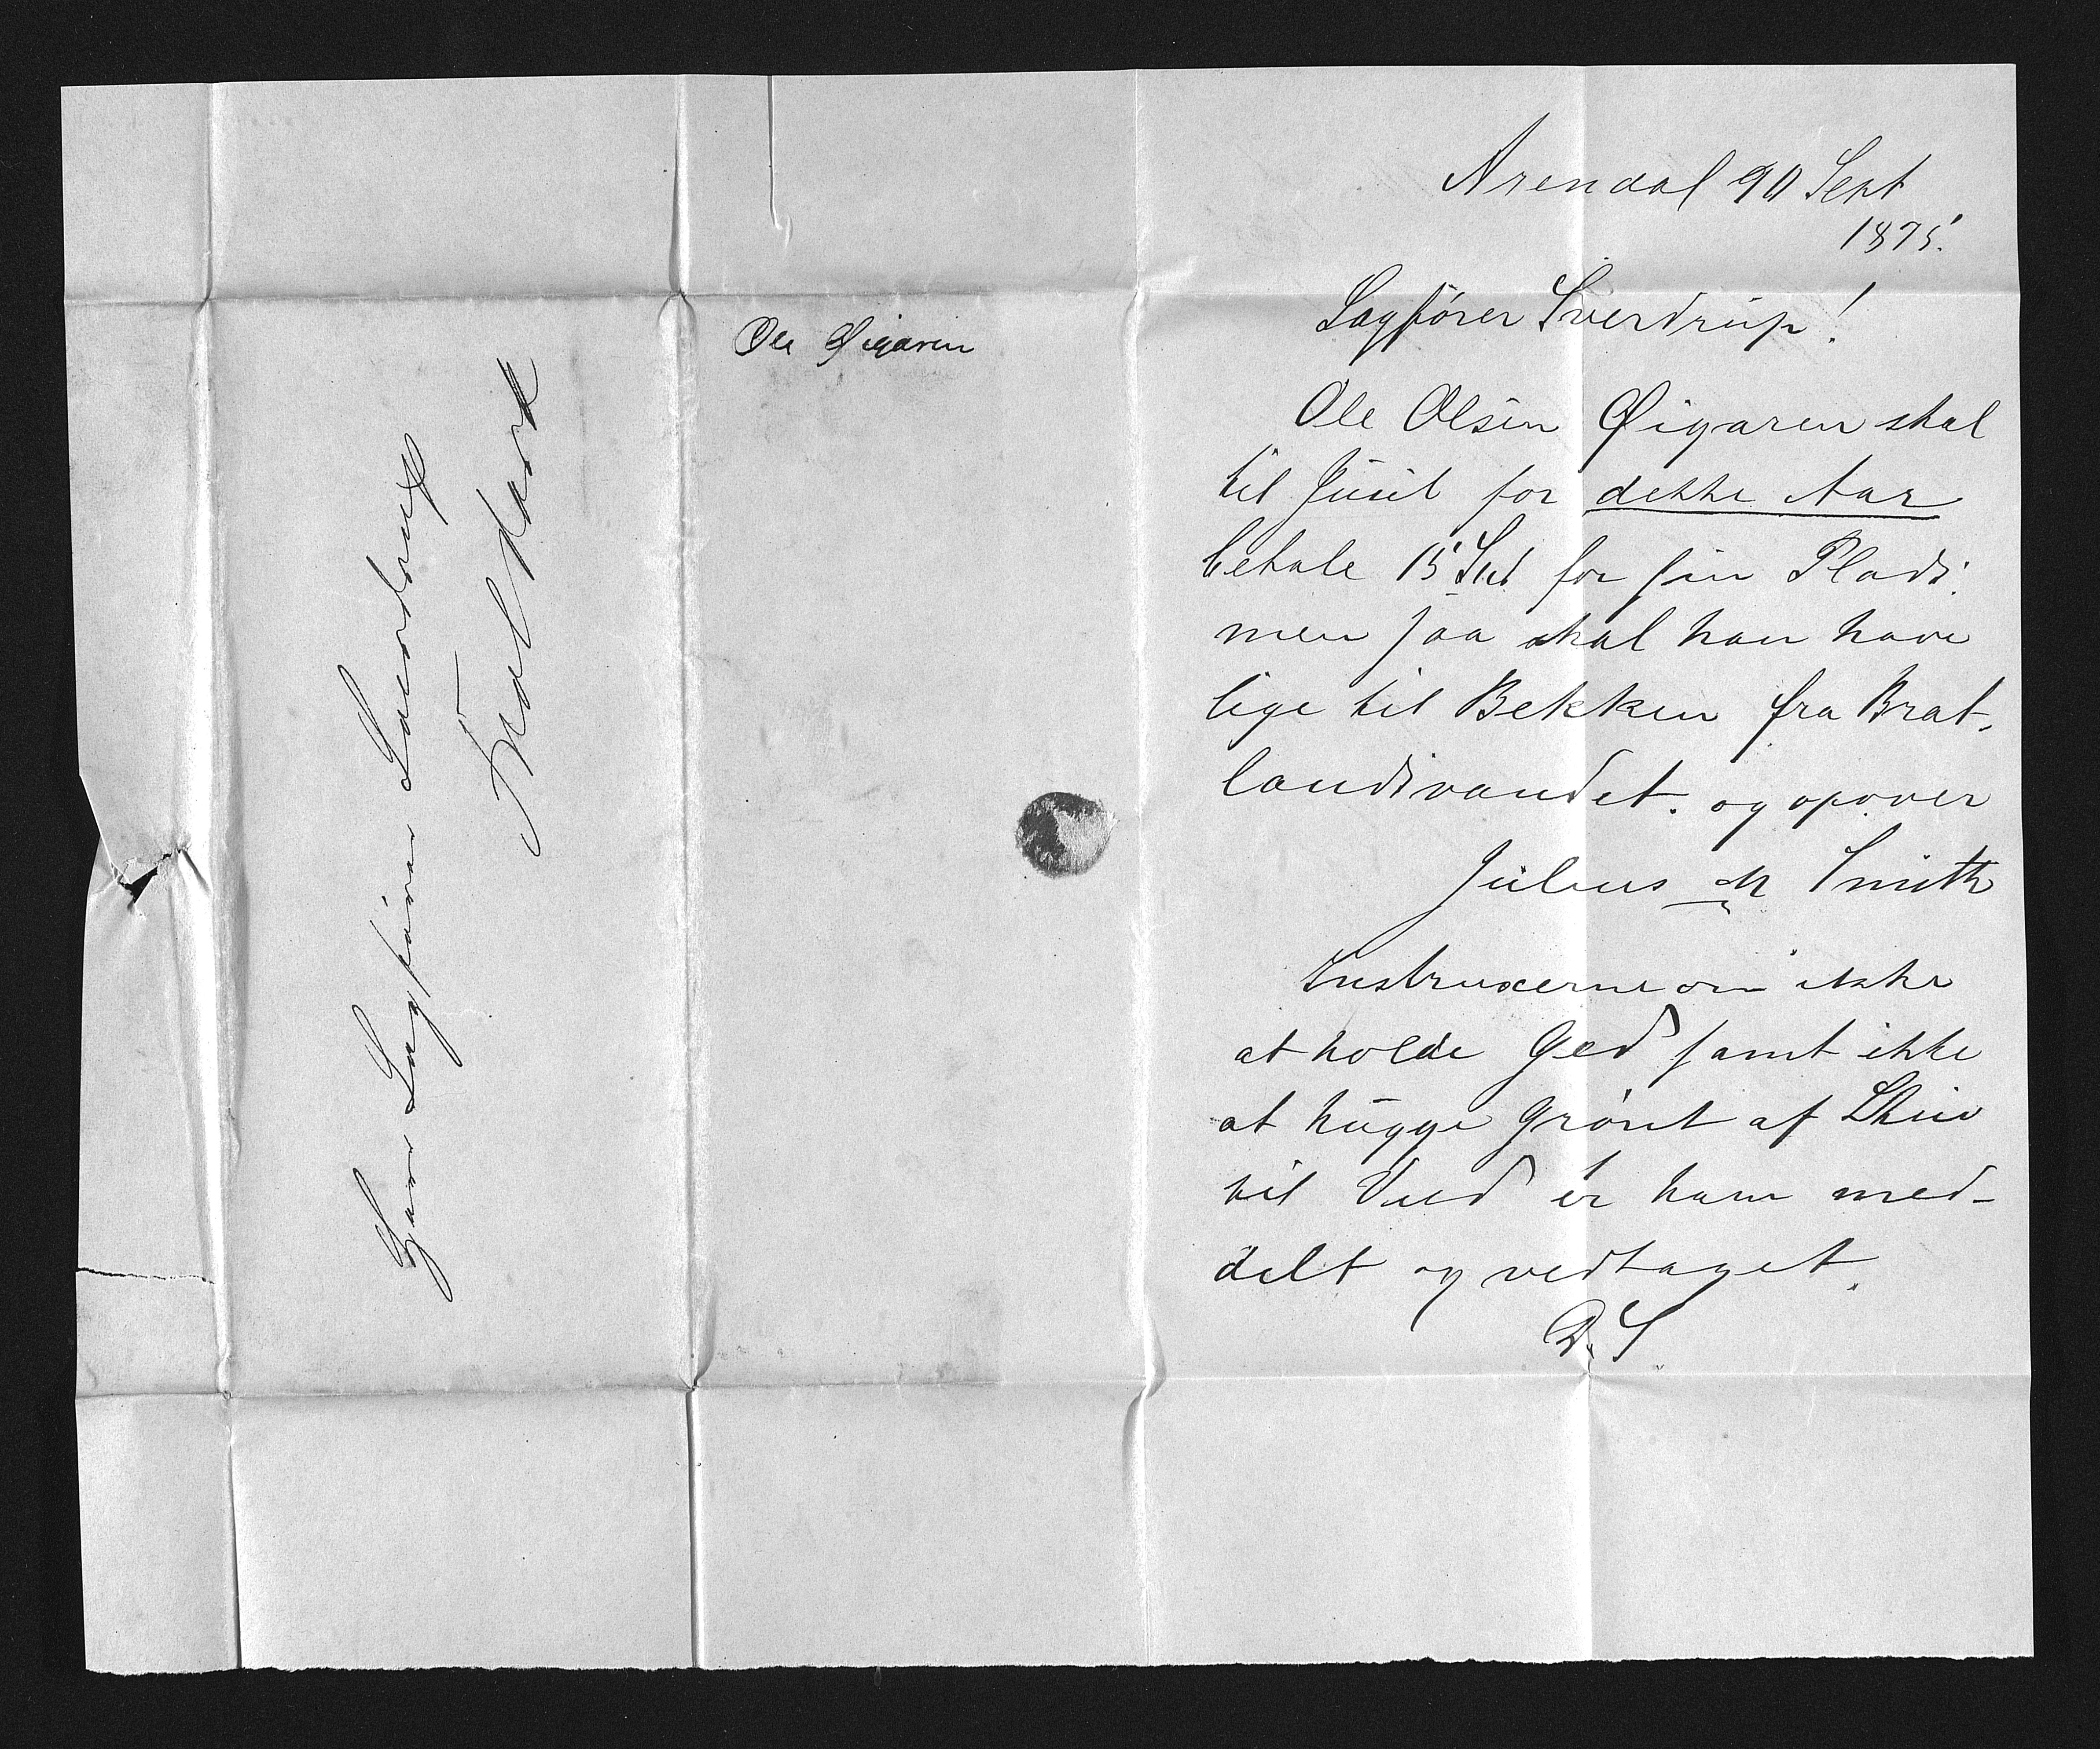 Herr Sagfører Sverdrup
Ole Øigaren
Arendal 20 Sept
1875.
Sagfører Sverdrup!
Ole Olsen Øigaren skal
til Juul for dette Aar
betale 15 Spd for sin Plads.
men saa skal han have
lige til Bekken fra Brat-
landsvandet. og opover
Julius M Smith
Instruxerne om ikke
at holde Ged samt ikke
at hugge Grønt af
til Ved er ham med-
delt og vedtaget.
D. S